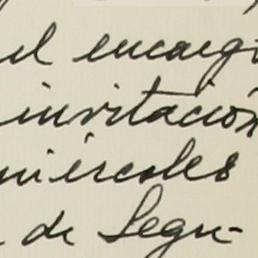 el encargo
invitación
miércoles
de Segu-